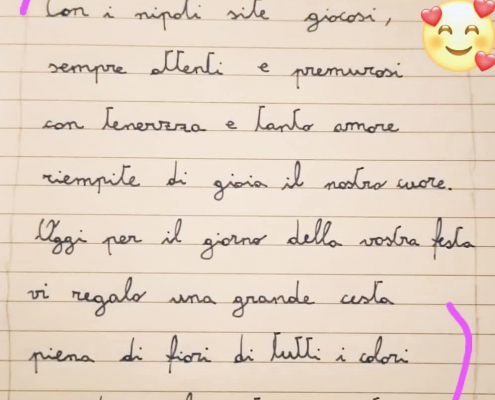 Con i nipoti site giocosi,
sempre attenti e premurosi
con tenerezza e tanto amore
riempite di gioia il nostro cuore.
Oggi per il giorno della vostra festa
vi regalo una grande cesta
piena di fiori di tutti i colori